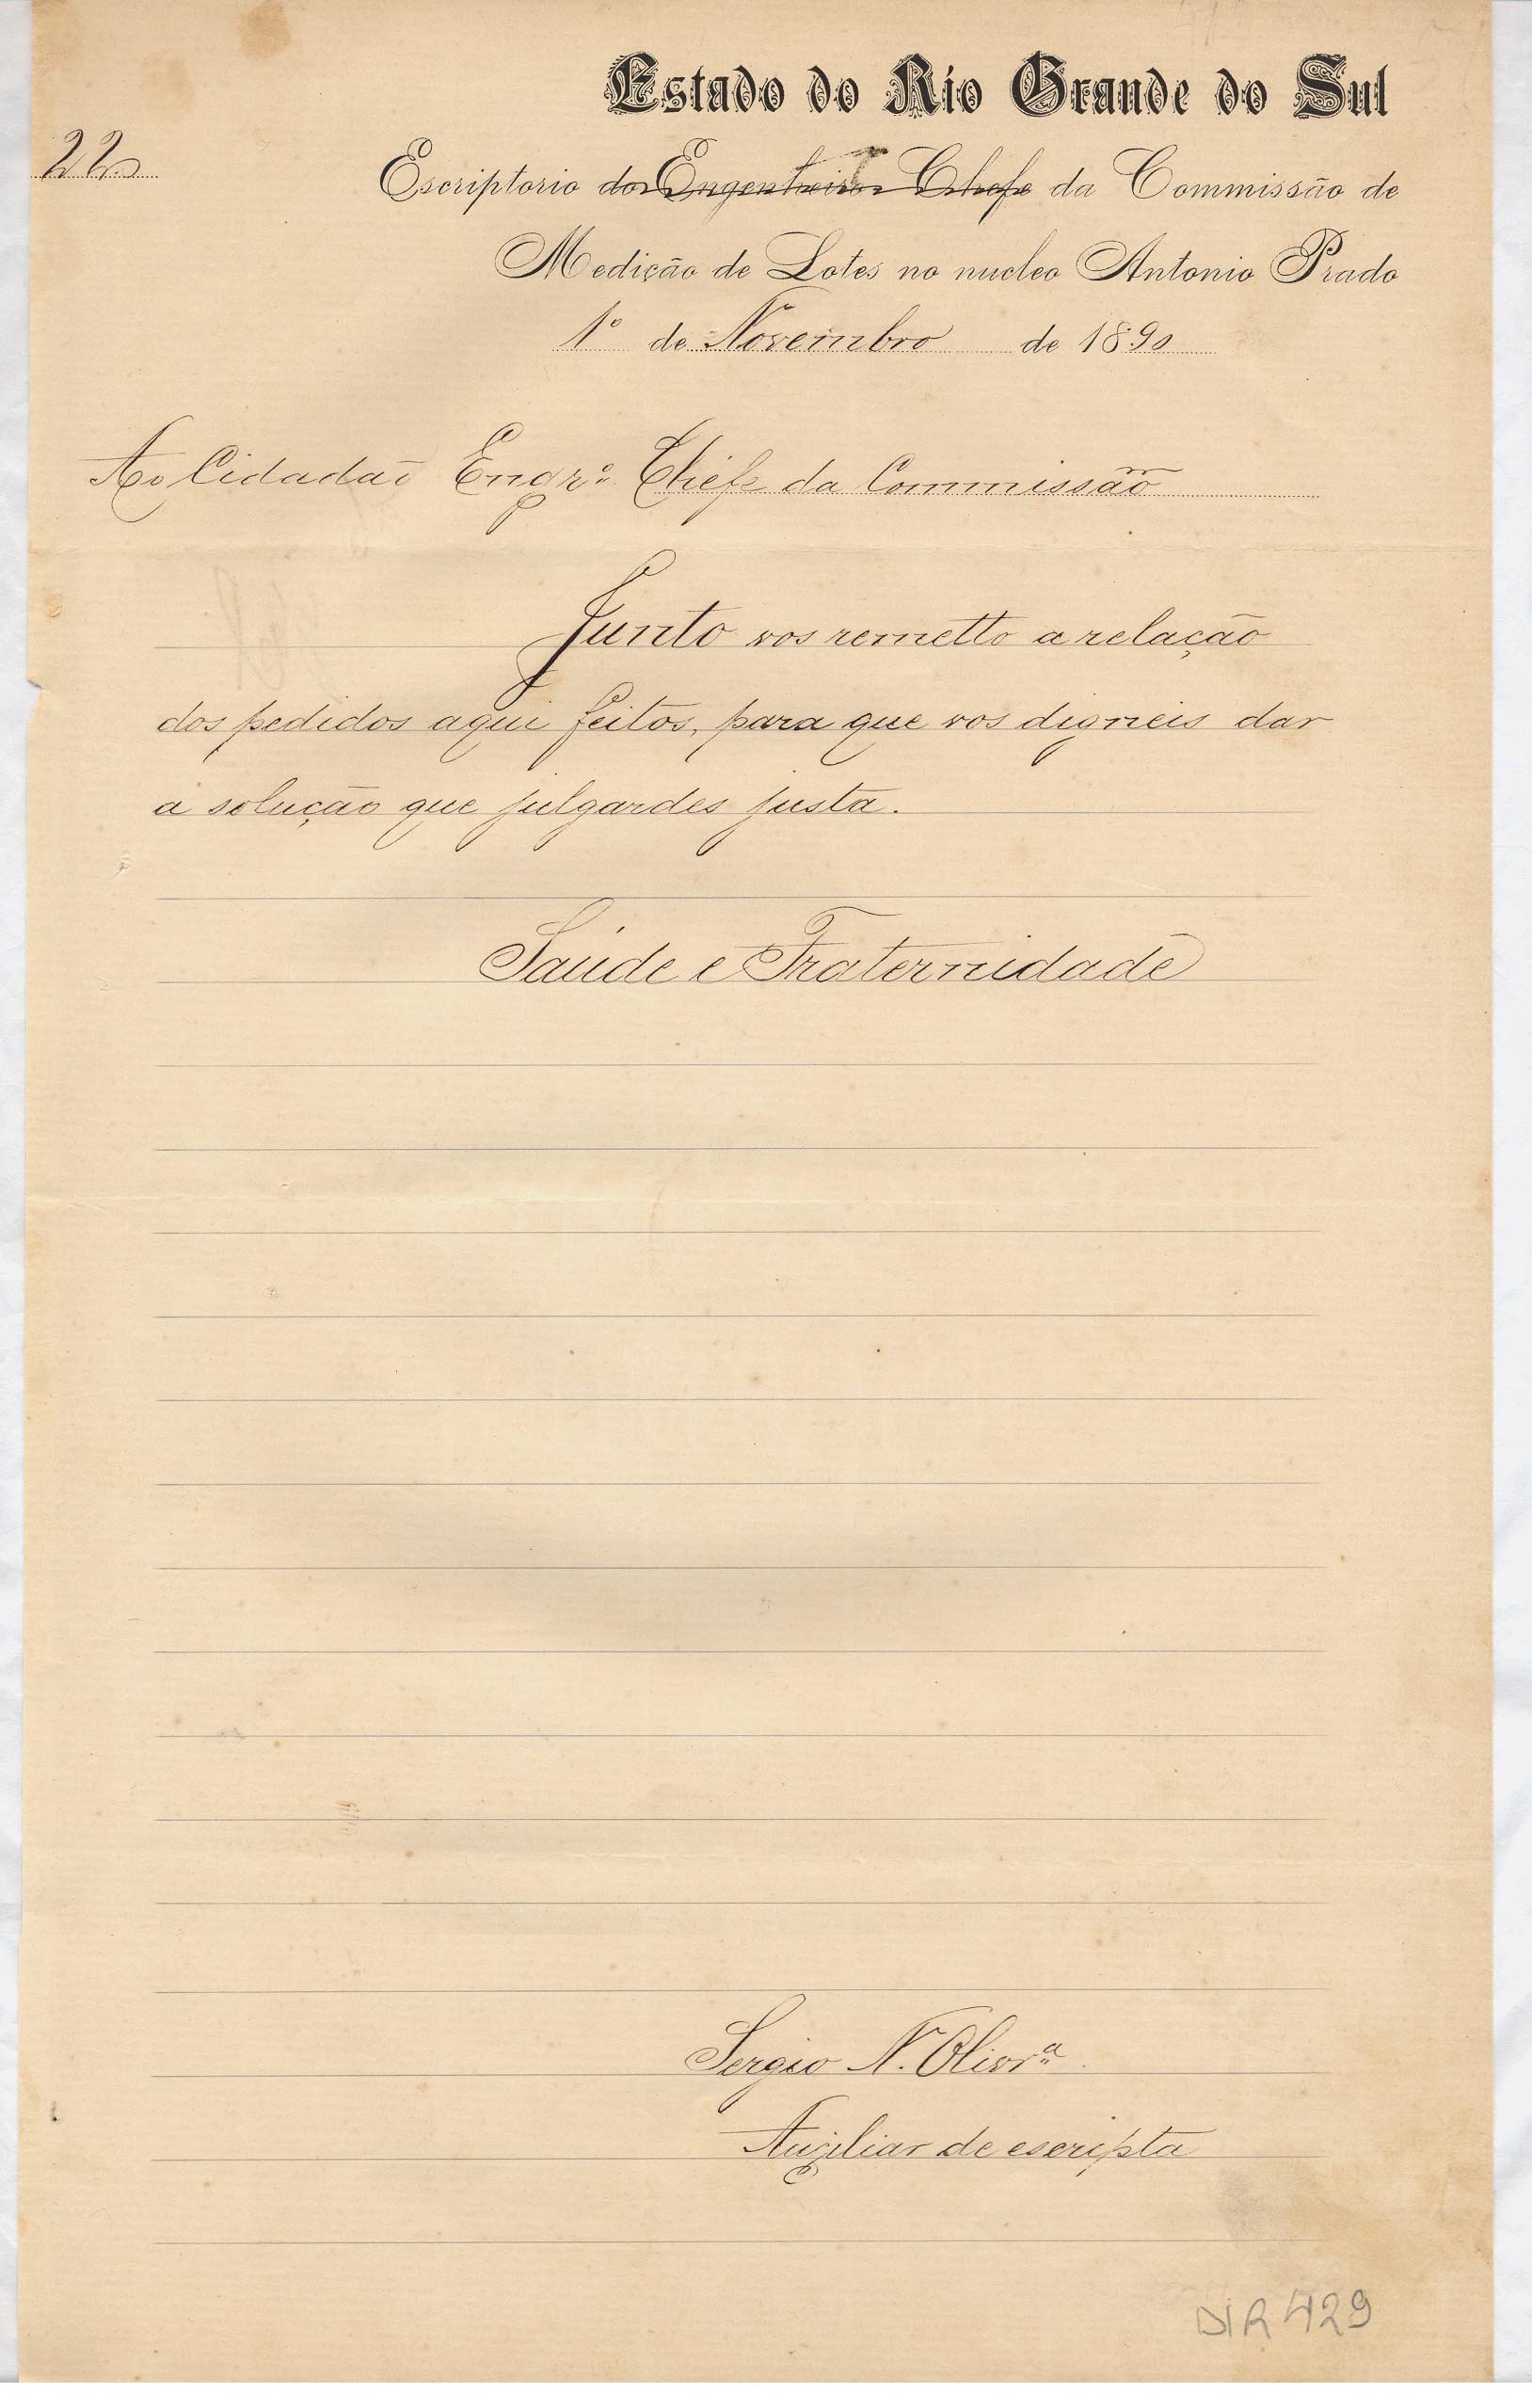 Estado do Rio Grande do Sul
22
Escriptorio do Engenheiro Chefe da Commissão de
Medição de Lotes no nucleo Antonio Prado
1º de Novembro de 1890
Ao Cidadão Engrº Chefe da Commissão
Junto vos remetto a relação
dos pedidos aqui feitos, para que vos digneis dar
a solução que julgardes justa.
Saúde e Fraternidade
Sergio N. Olivrª
Auxiliar de escripta
DIR 429